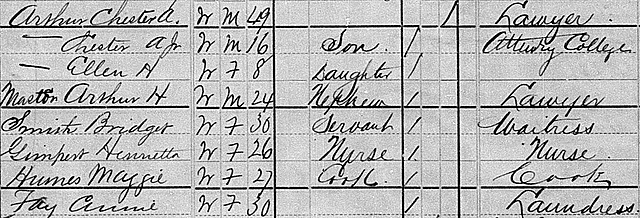 Arthur Chester A. W M 49 1 Lawyer
— Chester A Jr W M 16 Son 1 Attendg College
— Ellen H W F 8 Daughter 1
Maston Arthur H W M 24 Nephew 1 Lawyer
Smith Bridget W F 30 Servant 1 Waitress
Gimpert Henrietta W F 26 Nurse 1 Nurse
Humes Maggie W F 27 Cook 1 Cook
Fay Annie W F 30 1 Laundress